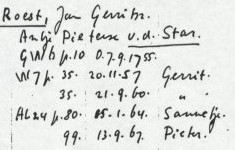 Roest, Jan Gerritz.
Antje Pieterse v.d. Star.
GW6 p.10 0.7.9.1755.
W7 p. 35. 20.11.57 Gerrit.
35. 21.9.60. "
AL24 p.80. 15.1.64. Sannetje.
99. 13.9.67. Pieter.